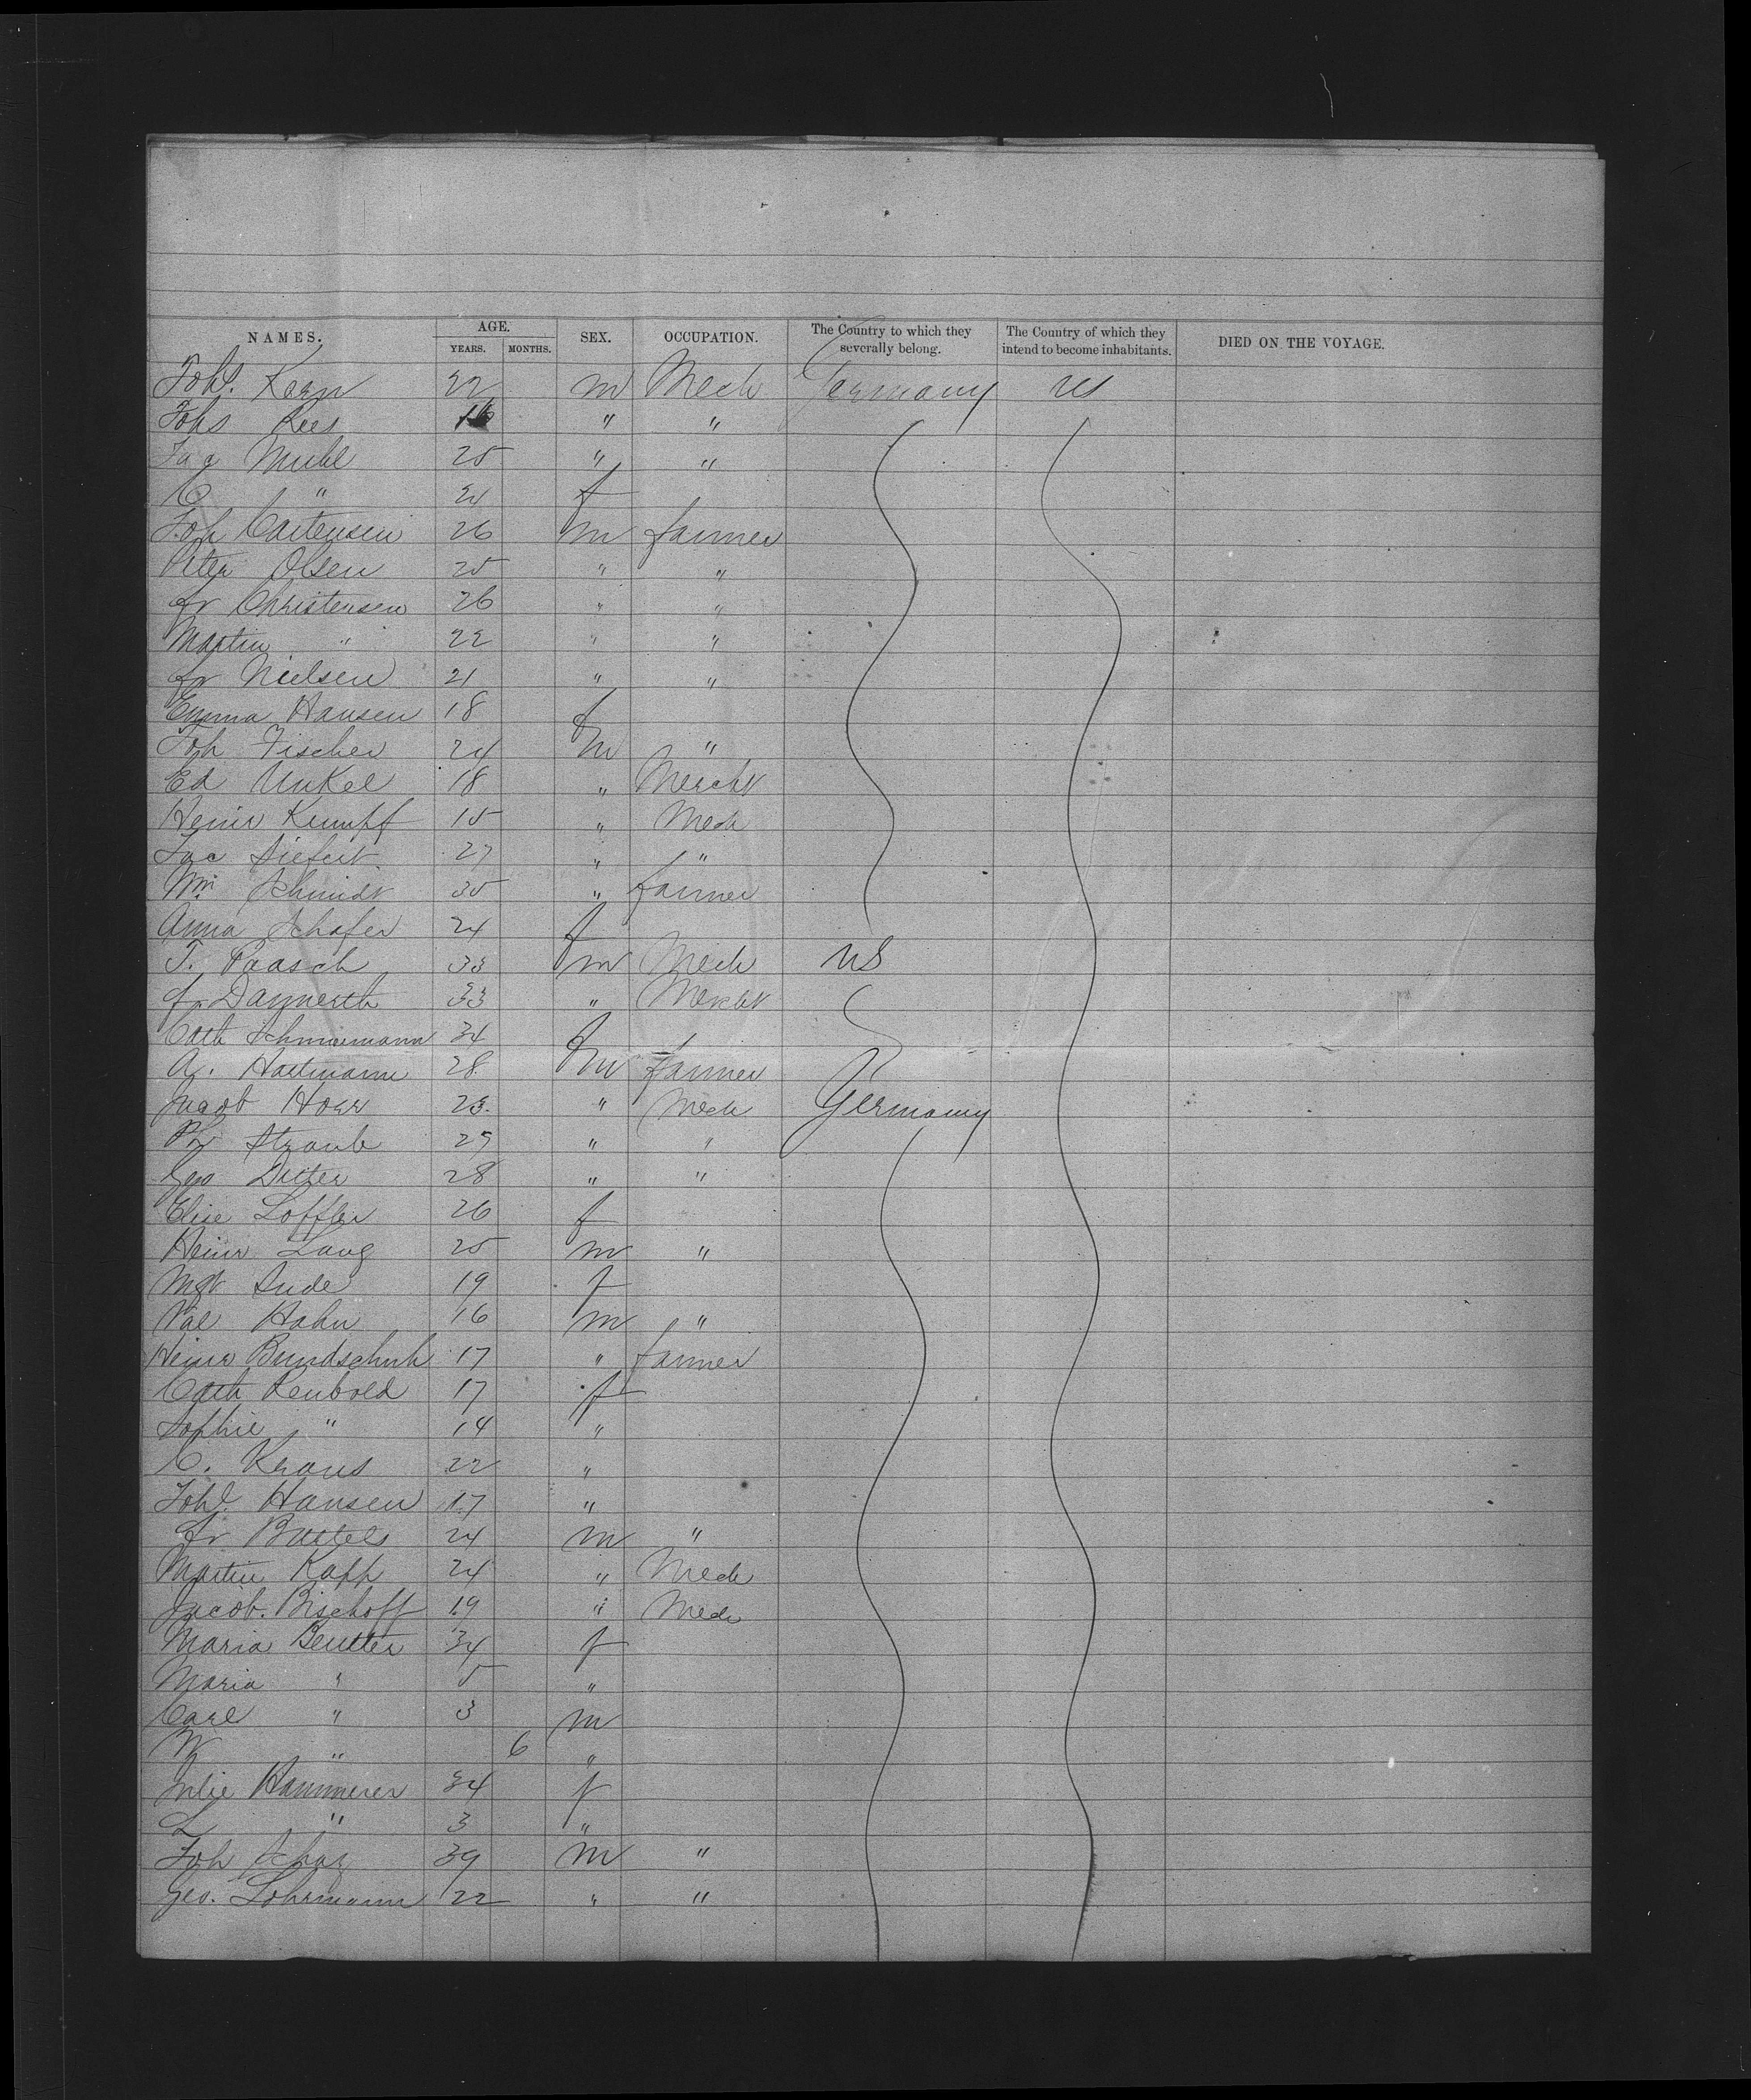 NAMES. AGE. YEARS. MONTHS. SEX. OCCUPATION. The Country to which they severally belong. The Country of which they intend to become inhabitants. DIED ON THE VOYAGE.
Joh. Kern 22 m Mech Germany US
Johs Rees 16 " "
Jac Muhl 25 " "
C " 24 f
Joh Cartensen 26 m farmer
Peter Olsen 25 " "
Fr Christensen 26 " "
Martin " 22 " "
Fr Nielsen 21 " "
Emma Hansen 18 f
Joh Fischer 24 m "
Ed Unkel 18 " Mercht
Heinr Kumpf 15 " Mech
Jac Siefert 27 " "
Wm Schmidt 35 " farmer
Anna Schafer 24 f
T. Paasch 33 m Mech US
Fr 33 " Mercht
Cath 34 f
A. Hartmann 28 m farmer
Jacob Horr 23 " Mech Germany
Ph Straub 25 " "
Geo Ditzer 28 " "
Elise Loffler 26 f
Heinr Lang 25 m "
Mgt Sude 19 f
Val Hahn 16 m "
Heinr Bundschuh 17 " farmer
Cath Reubold 17 f
Sophie " 14 "
C. Kraus 22 "
Joh. Hansen 17 "
Fr Bartels 24 m "
Martin Kapp 24 " Mech
Jacob Bischoff 19 " Mech
Maria Beutter 34 f
Maria " 5 "
Carl " 3 m
W " 6 "
Julie Hammerer 34 f
L " 3 "
Joh Schar 39 m "
Geo. Lohrmann 22 " "